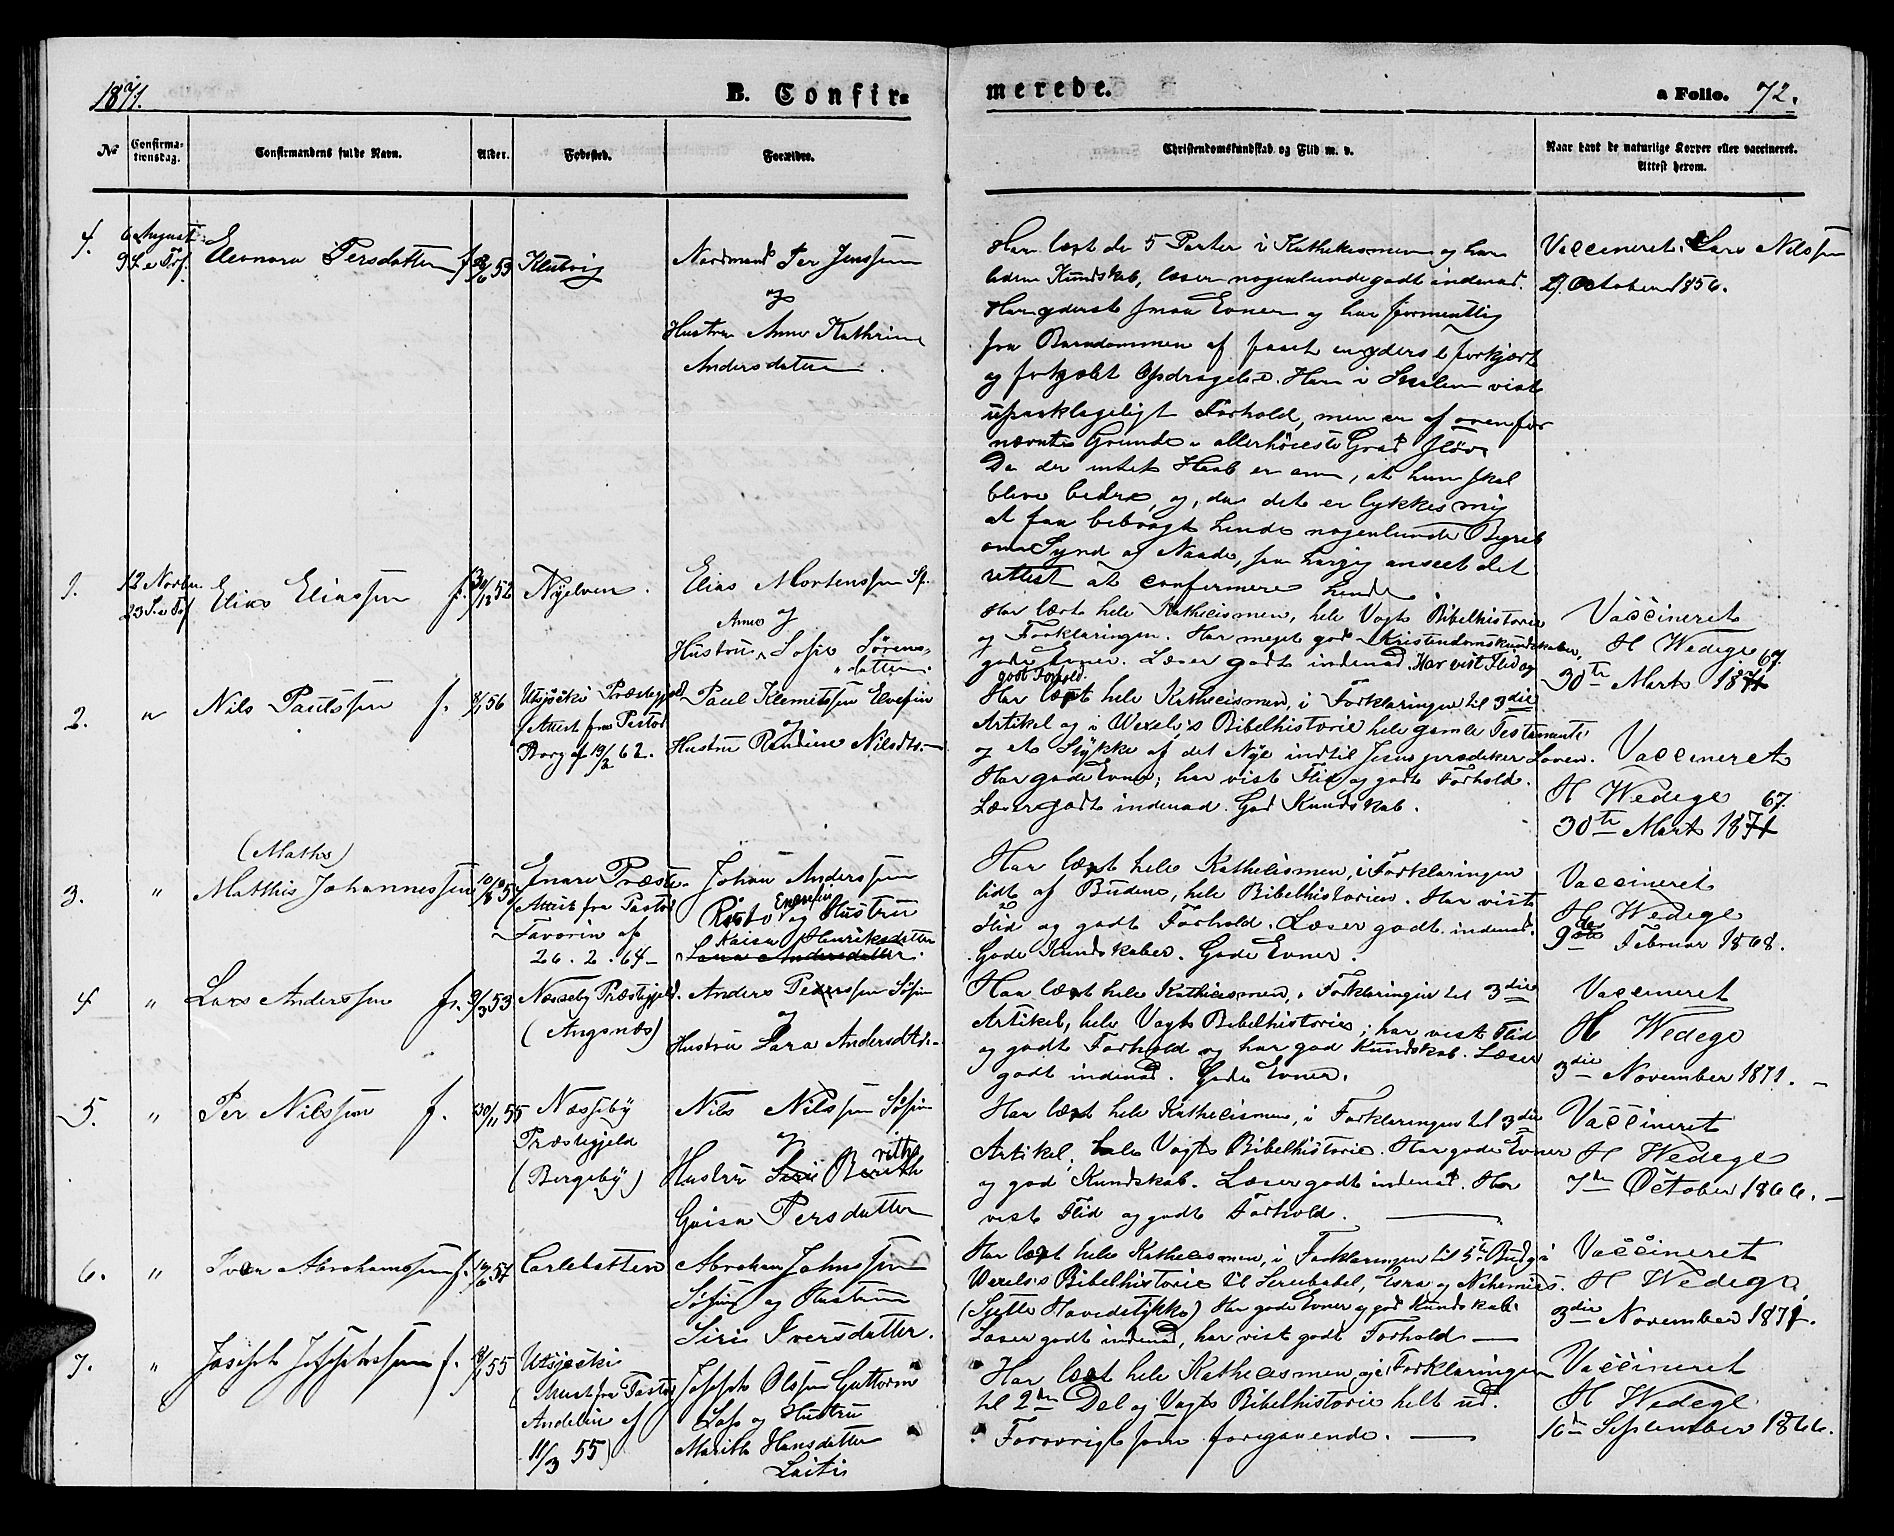 1871.
B. Confir=
merede.
a Folio. 72.
No
Confirma-
tionsdag.
Confirmandens fulde Navn.
Alder.
Fødested.
Forældre.
Christendomskundskab og Flid m. v.
Naar havt de naturlige Kopper eller vaccineret.
Attest herom.
4.
6 August
9 S. e Tref.
Eleonora Persdatter f.
53
Klubvig
Nordmand Per Jenssen
og
Hustru Anne Kathrine
Andersdatter.
Har læst de 5 Parter i Kathekismen og har
liden Kundskab, læser nogenlunde godt indenad.
Har yderst smaa Evner og har formentlig
fra Barndommen af faaet en yderst forkjært
og forkjælet Opdragelse. Har i Skolen vist
upaaklageligt Forhold, men er af ovenfor
nævnte Grunde i allerhøieste Grad sløv.
Da der intet Haab er om, at hun skal
blive bedre, og, da det er lykkes mig
at faa bebragt hende nogenlunde Begreb
om Synd og Naade, saa har jeg anseet det
rettest at confirmere hende.
Vaccineret. Lars Nilssen
29 October 1856.
1.
12 Novbr.
23 S. e Tref
Elias Eliassen f.
30/12 52
Nyelven.
Elias Mortenssen Sp.
og
Anne
Hustru Sofie Sørens-
datter.
Har lært hele Kathecismen, hele Vogts Bibelhistorie
og Forklaringen. Har meget gode Kristendomskundskaber,
gode Evner. Læser godt indenad. Har vist Flid og
godt Forhold.
Vaccineret
H Wedege
67.
30te Marts 1871
2.
"
Nils Paulssen f.
8/1 56
Utsjoki Præstegjeld
(Attest fra Pastor
Borg af 19/2 62.
Paul Klemetssen
og
Hustru Nilsdtr.
Har lært hele Kathecismen, i Forklaringen til 3die
Artikel og i Wexels's Bibelhistorie hele gamle Testamente
og et Stykke af det Nye indtil Jesus prædiker Loven.
Har gode Evner; har vist Flid og godt Forhold.
Læser godt indenad. God Kundskab.
Vaccineret
H Wedege
67.
30te Marts 1871
3.
"
(Mathis)
Matthis Johannessen
Enare Præste-
(Attest fra Pastor
Favorin af
26. 2. 64-
Johan Anderssen
og Hustru
Kaisa Henriksdatter
Sara Andersdatter.
Har lært hele Kathecismen, i Forklaringen
lidt af Budene, hele Bibelhistorien. Har vist
Flid og godt Forhold. Læser godt indenad.
Gode Kundskaber. Gode Evner.
Vaccineret
H Wedege
9de Februar 1868.
4
"
Lars Anderssen f.
9/3 53
Næsseby Præstegjeld.
(Angsnæs)
Anders Pederssen Søfin
og
Hustru Sara Andersdtr.
Har lært hele Kathecismen, i Forklaringen til 3die
Artikel, hele Vogts Bibelhistorie; har vist Flid
og godt Forhold og har god Kundskab. Læser
godt indenad. Gode Evner.
Vaccineret
H Wedege
3die November 1871.
5.
"
Per Nilssen f.
30/11 55
Næsseby
Præstegjeld
(Bergeby)
Nils Nilssen Søfin
og
Hustru Siri Berith
rithe
Gaisa Persdatter
Har lært hele Kathecismen, i Forklaringen til 3die
Artikel, hele Vogts Bibelhistorie. Har gode Evner
og god Kundskab. Læser godt indenad. Har
vist Flid og godt Forhold.
Vaccineret
H Wedege
7de October 1866.
6.
"
Iver Abrahamssen f.
57
Carlebotten
Abraham Johnssen
Søfin og Hustru
Siri Iversdatter.
Har lært hele Kathecismen, i Forklaringen til 5te Bud, i
Vexels's Bibelhistorie til Serubabel, Esra og Nehemias.
(Sjette Hovedstykke) Har gode Evner og god Kundskab.
Læser godt indenad, har vist godt Forhold
Vaccineret
H Wedege
3die November 1871.
7.
"
Joseph Josephssen f.
8/1 55
Utsjoki
(Attest fra Pastor
Andelin af
11/3 55)
Joseph Olssen Guttorm
Lap og Hustru
Marith Hansdatter
Laiti
Har lært hele Kathecismen, og i Forklaringen
til 2den Del og Vogts Bibelhistorie helt ud.
Forøvrigt som foregaaende.
Vaccineret
H Wedege
16de September 1866.